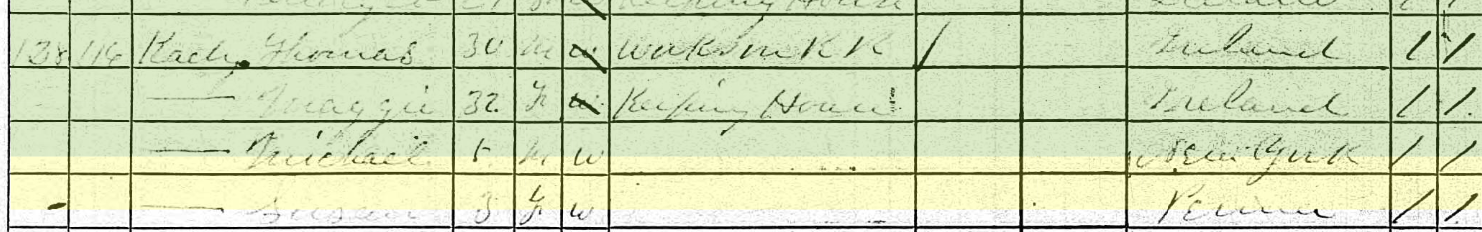 Keeping House
138 116 Thomas 30 M W Works on R R / Ireland / /
— Maggie 32 F W Keeping House Ireland / /
— Michael 5 M W New York / /
— Susan 3 F W Penna / /